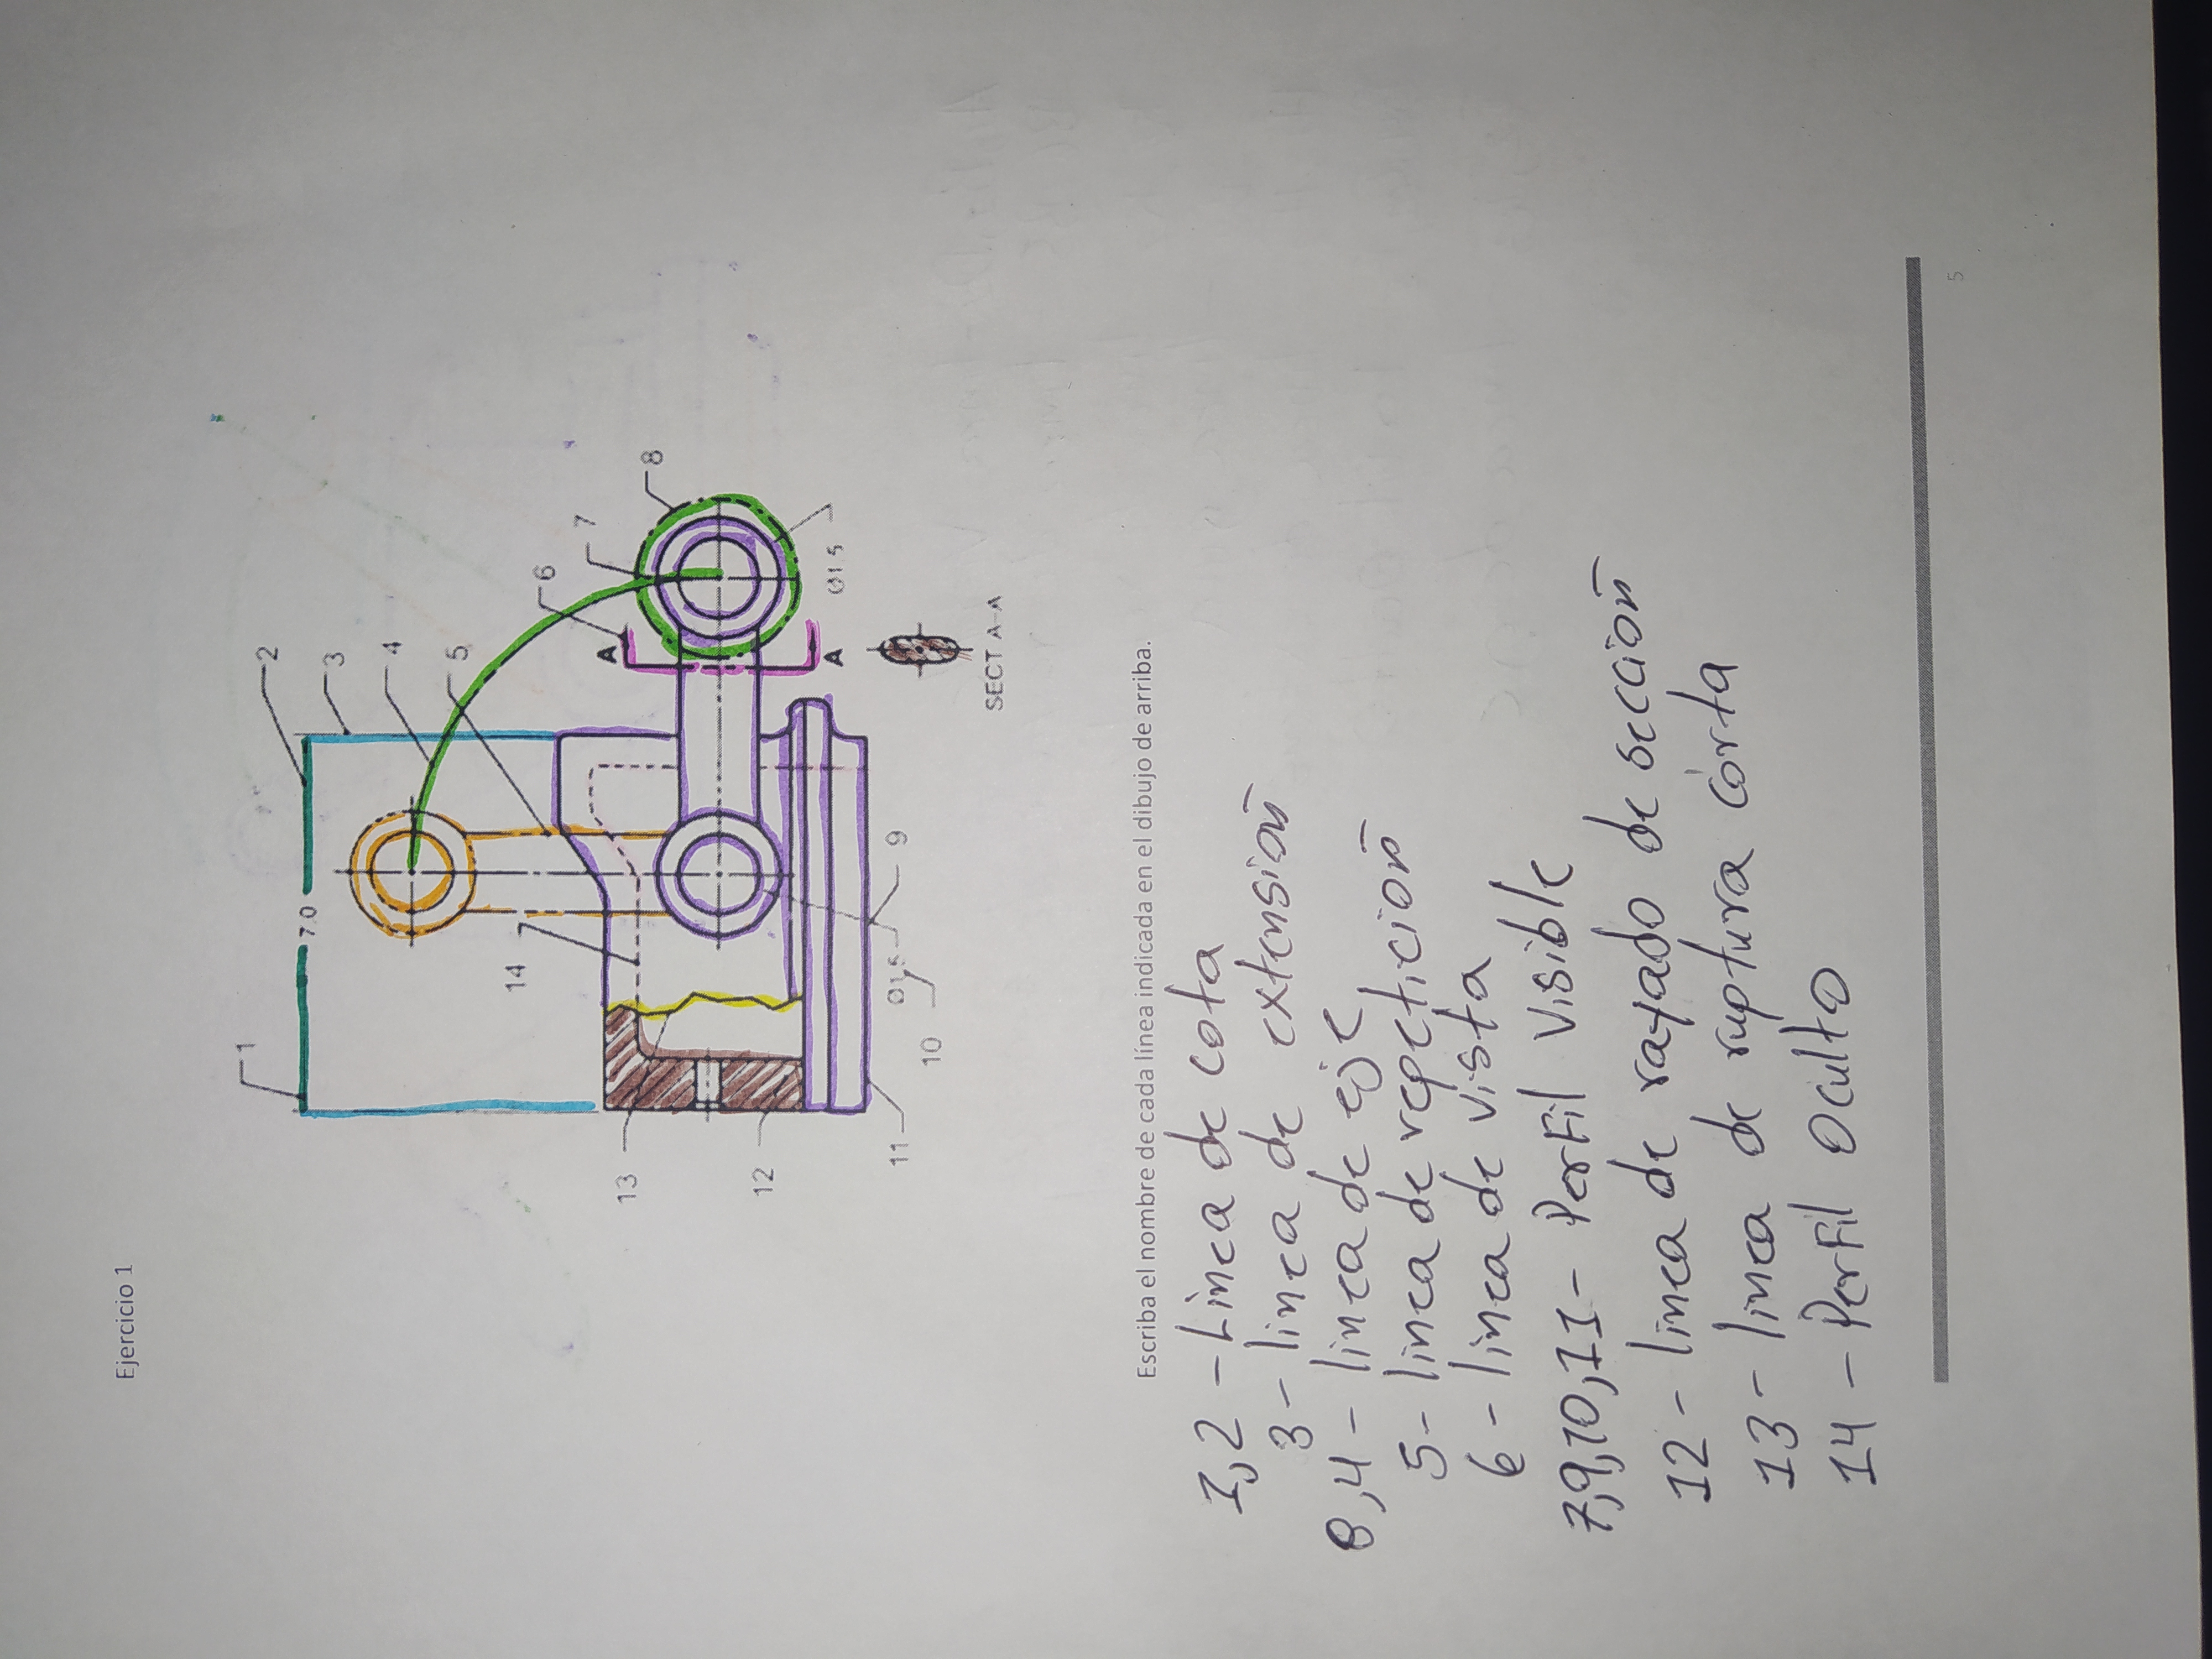 Ejercicio 1
1
2
7.0
3
4
5
14
6
A
7
13
8
12
A
Ø1.5
11
Ø1.5
9
10
SECT A-A
Escriba el nombre de cada línea indicada en el dibujo de arriba.
1,2 - Linea de cota
3 - linea de extensión
8,4 - linea de eje
5 - linea de repetición
6 - linea de vista
7,9,10,11 - Perfil Visible
12 - linea de rayado de sección
13 - linea de ruptura corta
14 - Perfil Oculto
5